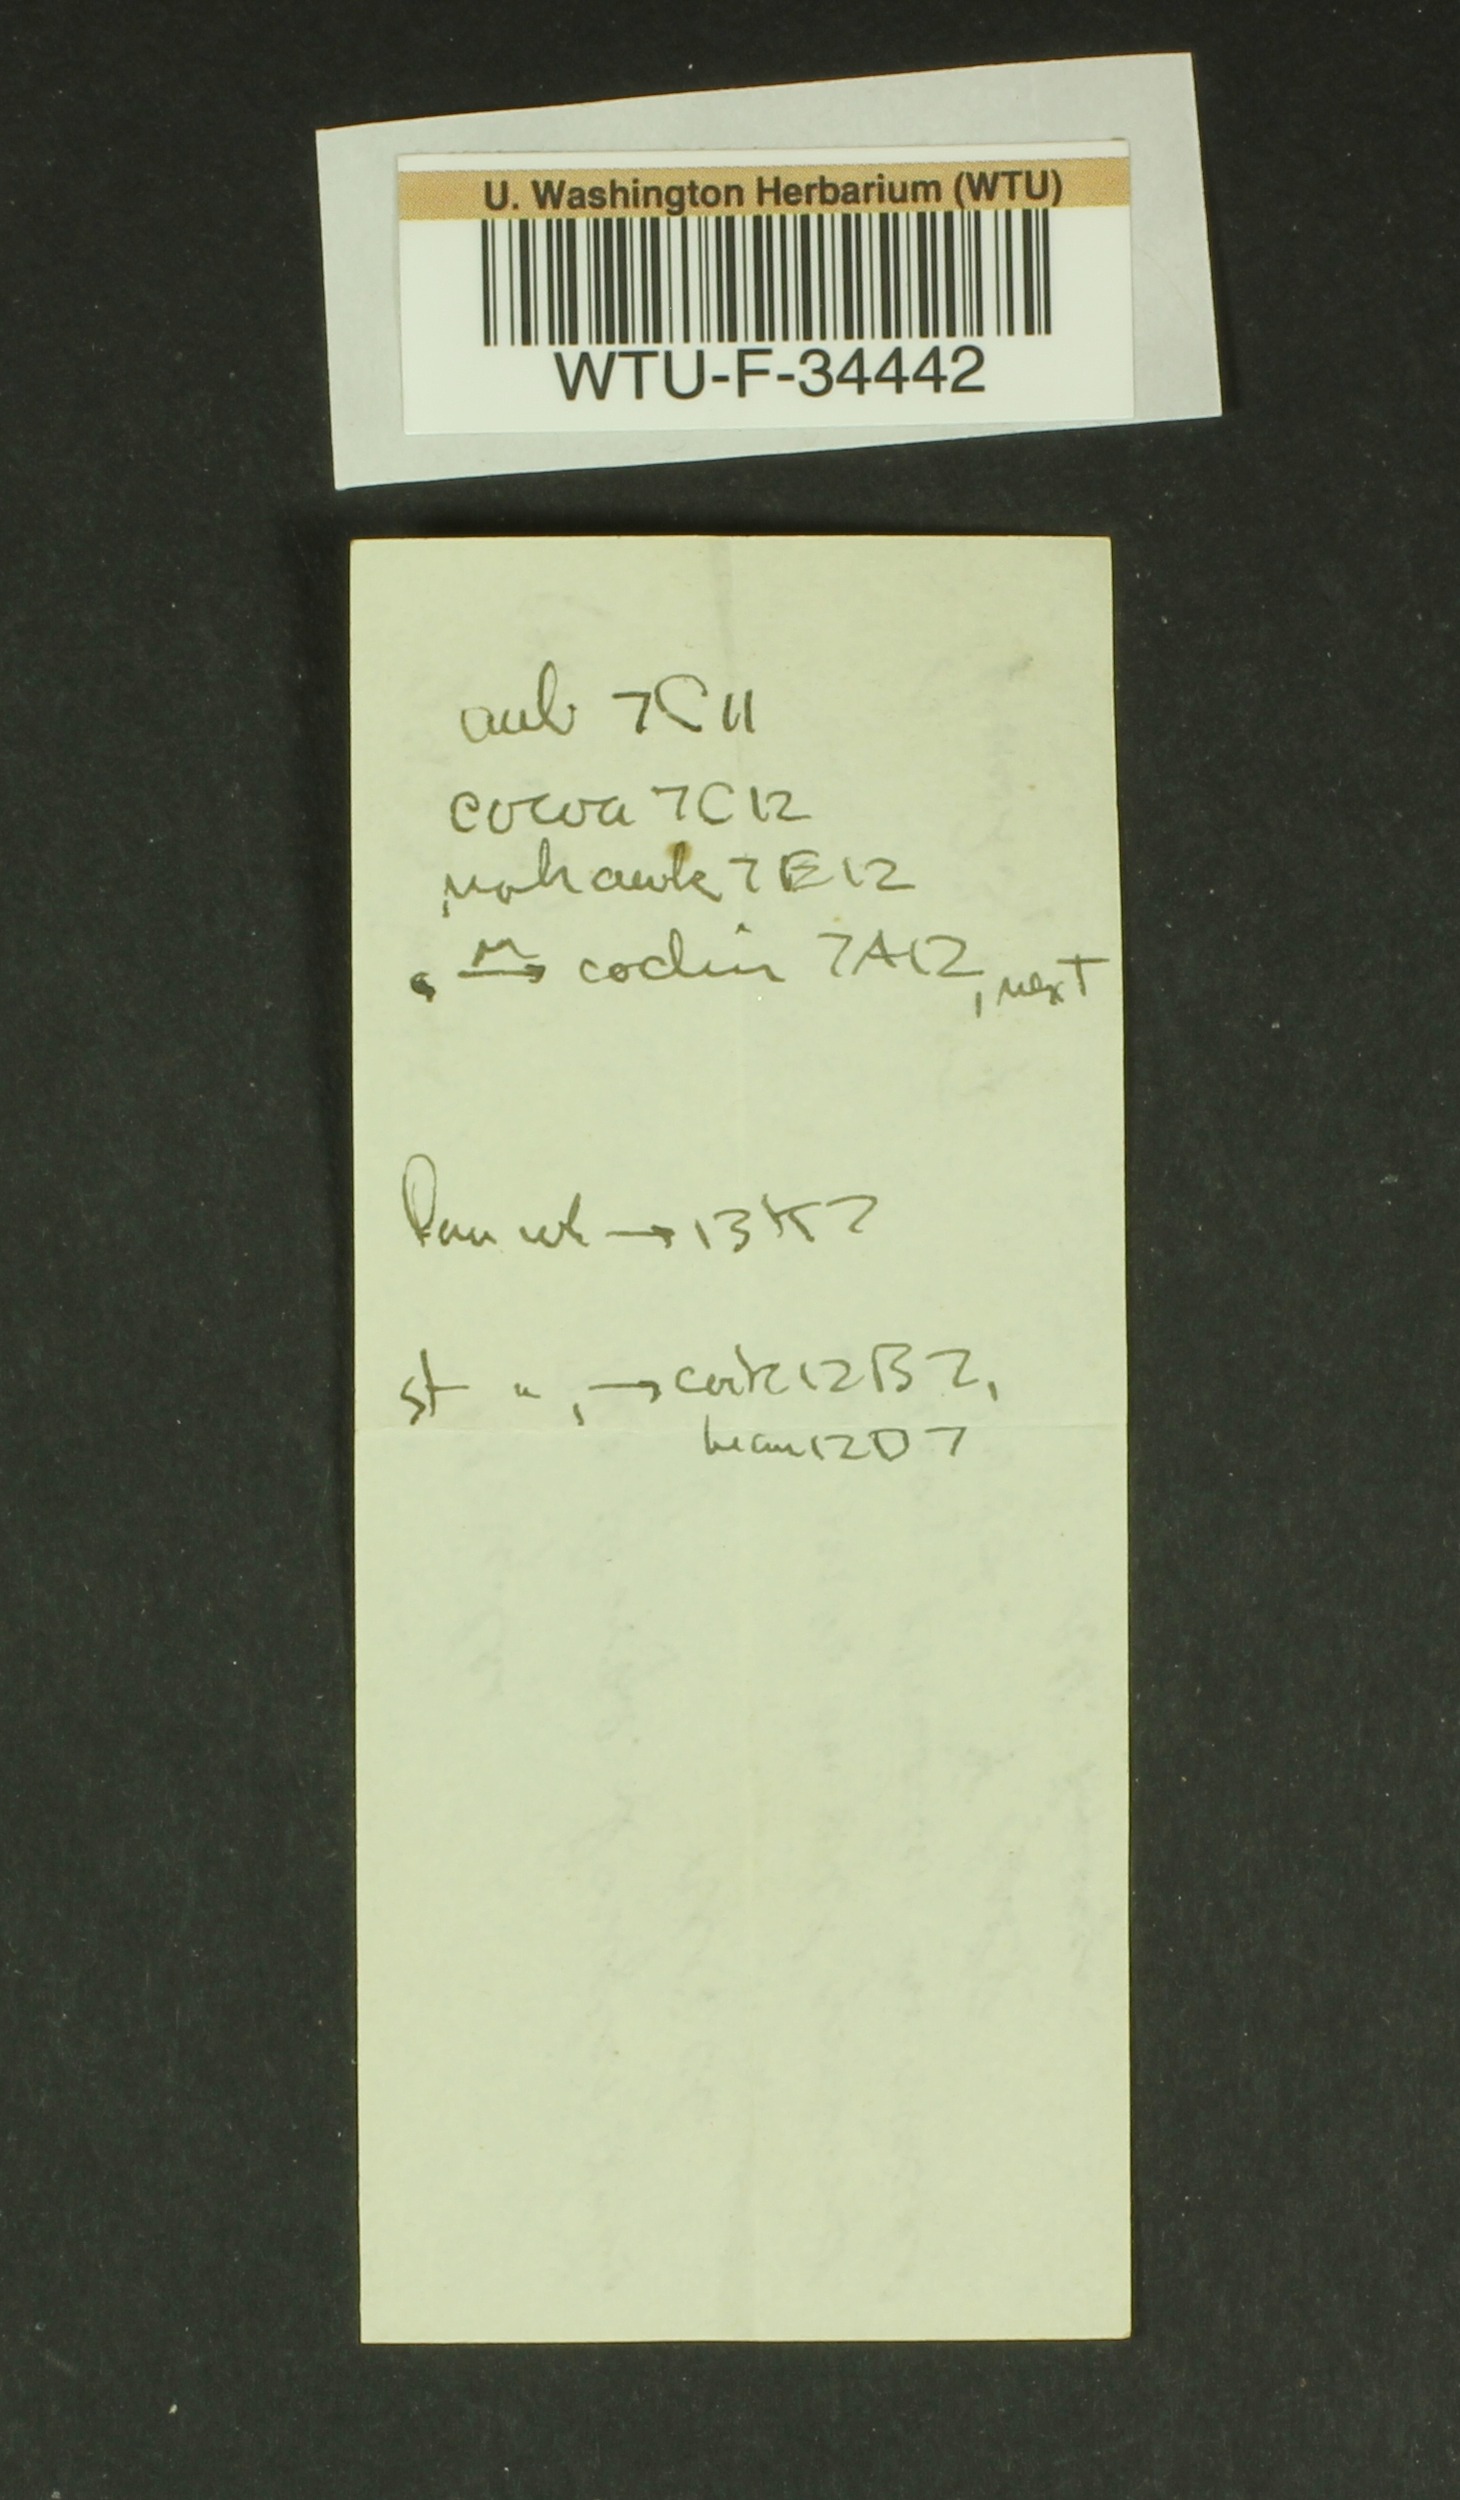 U. Washington Herbarium (WTU)
WTU-F-34442
aub 7C11
cocoa 7C12
mohawk 7E12
→ cochin 7A12, next
Lam wh → 13K7
st " , → cork 12B7,
bean 12D7